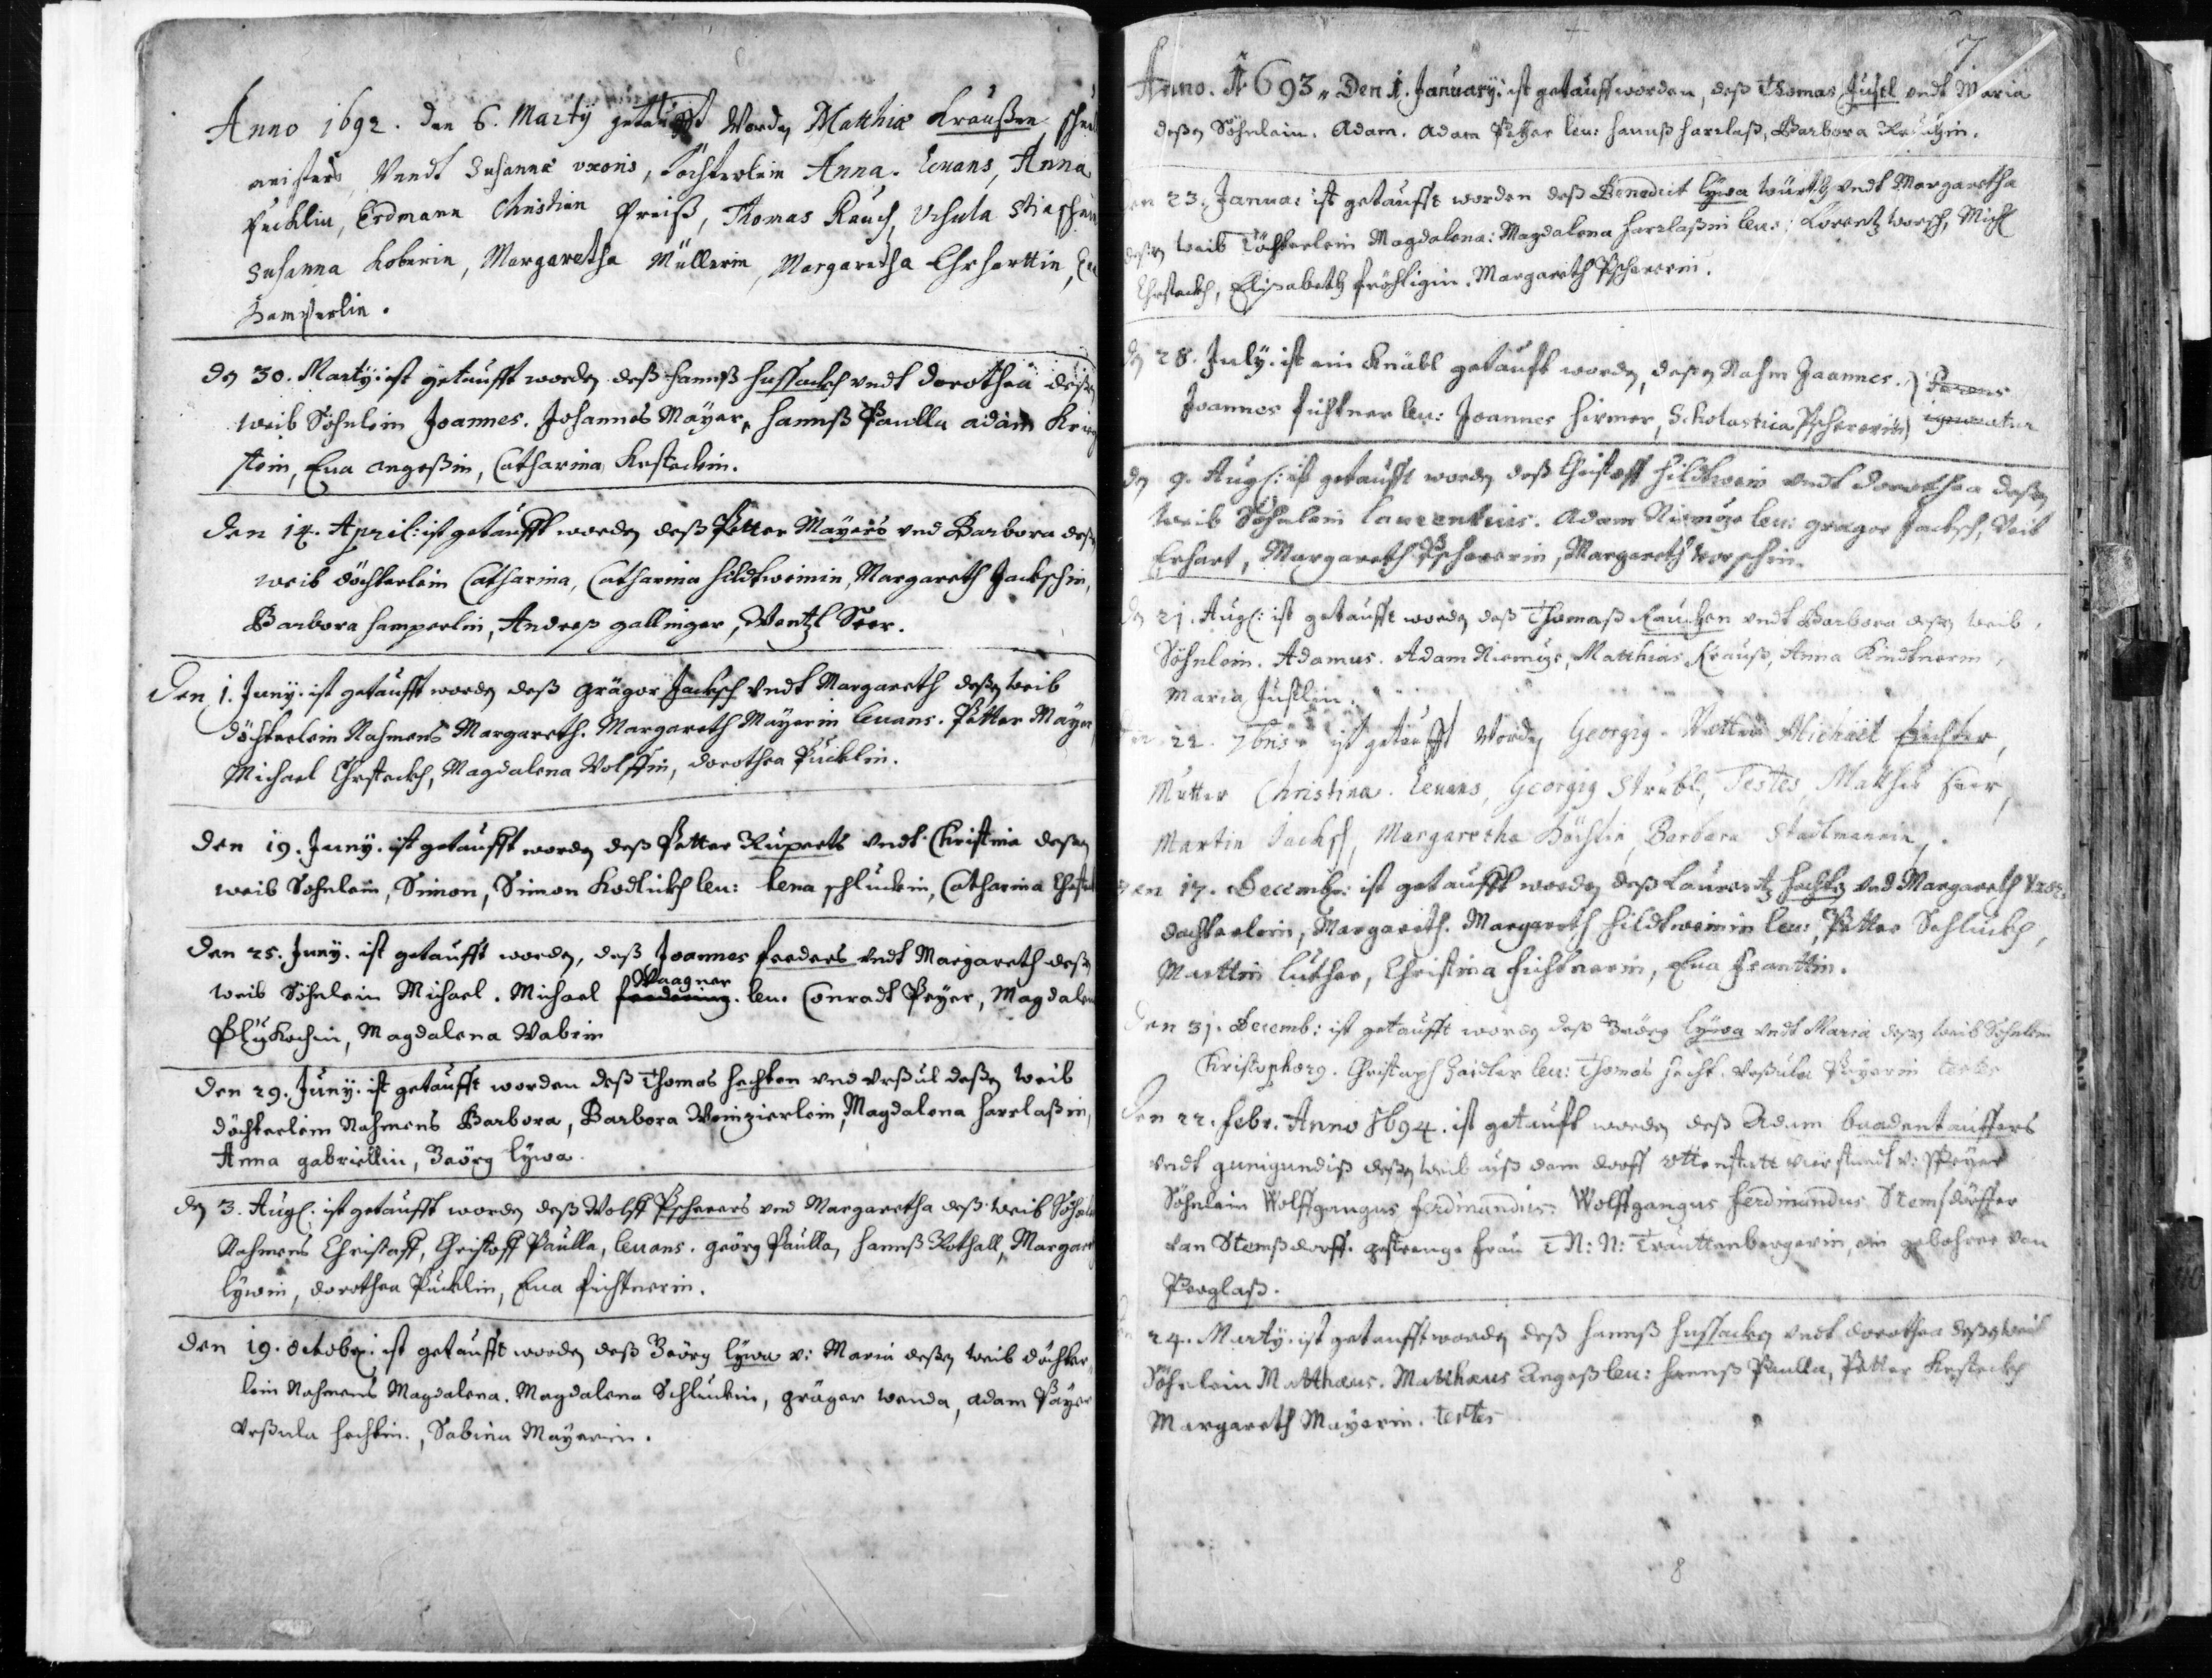 Anno 1692. den 6. Martÿ getaufft Worden Matthiæ Kraußen
meisters Vndt Susannæ vxoris, Töchterlein Anna. Leuans, Anna
Pucklin, Erdmann Christian Preiß, Thomas Rauch, Vrsula
Susanna Koberin, Margaretha Müllerin, Margaretha Ehrharttin,
Hamperlin.
den 30. Martÿ: ist getaufft worden deß Hannß Hussackh vndt Dorothea deßen
weib Söhnlein Joannes. Johannes Mayer, Hannß Paulla adam
stein, Eua Angeßin, Catharina
den 14. April: ist getaufft worden deß Petter Mayers vnd Barbora deßen
weib döchterlein Catharina, Catharina Hildtweinin, Margareth Jackschin,
Barbora Hamperlin, Andreß gallinger, Wentzl Seer.
den 1. Junÿ. ist getaufft worden deß Grägor Jacksch vndt Margareth deßen weib
döchterlein Nahmens Margareth. Margareth Mayerin leuans. Petter Mayer
Michael Ehrstackh, Magdalena Wolffin, dorothea Pucklin.
den 19. Junÿ. ist getaufft worden deß Petter Ruperts vndt Christina deßen
weib Sohnlein, Simon, Simon Kodlickh leu: Lena schluckin, Catharina
den 25. Junÿ. ist getaufft worden, deß Joannes feeders vndt Margareth deßen
Waagner
weib Söhnlein Michael. Michael leu. Conradt Peyer, Magdalena
Magdalena Wabrin
den 29. Junÿ. ist getaufft worden deß Thomas Hechten vnd vrßul deßen weib
döchterlein Nahmens Barbora, Barbora Weinzierlein, Magdalena Harlaßin,
Anna gabriellin, Geörg lÿwa.
den 3. Aug: ist getaufft worden deß Wolff Pscherers vnd Margaretha deß weib
Nahmens Christoff, Christoff Paulla, leuans. geörg Paulla, Hannß Rothall,
lÿwin, dorothea Pucklin, Eua fichtnerin.
den 19. Octob: ist getaufft worden deß Geörg lÿwa v: Maria deßen weib döchter-
lein Nahmens Magdalena. Magdalena Schluckin, gräger wenda, adam Payer
vrßula Hechtin, Sabina Mayerin.
7
Anno. 1693. Den 1. Januarÿ: ist getaufft worden, deß Thomas Justl vndt Maria
deßen Söhnlein. Adam. Adam Peyer leu: Hannß Harlaß, Barbora
23. Janua: ist getaufft worden deß Benedict lÿwa würth vndt Margaretha
deßen weib Töchterlein Magdalena: Magdalena Harlaßin leu: Lorentz worsch, Mich
Ehrstackh, Elisabeth fröhligin. Margareth Pscherein.
28. Julÿ. ist ein Knäbl getaufft worden, deßen Nahm Joannes. Parens
Joannes fichtner leu: Joannes Hirmer, Scholastica Pschererin ignoratur
den 9. Aug: ist getaufft worden deß Christoff Hildtwein vndt dorothea deßen
weib Söhnlein Laurentius. Adam leu: gregor Jacksch, Veit
Erhart, Margareth Pschererin, Margareth worschin.
21. Aug: ist getaufft worden deß Thomaß Rauchen vndt Barbora deßen weib
Söhnlein. Adamus. Adam Matthias Krauß, Anna Kindtnerin,
Maria Justlin.
22. 7bris ist getaufft Worden Georgiy. Vatter Michael
Mutter Christina. Leuans, Georgiy Strubl, Testes, Mathes Seer,
Martin Jacksch, Margaretha Böchlin, Barbara Stadlmannin.
den 17. Decemb: ist getaufft worden deß Laurentz Hechten vnd Margareth
dochterlein, Margareth. Margareth Hildtweinin leu: Petter Schluckh,
Marttin Luther, Christina fichtnerin, Eua
den 31. Decemb: ist getaufft worden deß Geörg lÿwa vndt Maria deßen weib Söhnlein
Christophory. Christoph Zeidler leu: Thomas Hecht. vrßula Peyerin testes
Den 22. febr. Anno 1694. ist getaufft worden deß Adam baadentauffers
vndt gunigundiß deßen weib auß dem dorff
Söhnlein Wolffgangus ferdinandus. Wolffgangus ferdinandus Stemsdörffer
van Stemßdorff. gestrenge frau T N: N: Trauttenbergerin, ein gebohrne von
Perglaß.
24. Martÿ. ist getaufft worden deß Hannß Hussacken vndt dorothea deßen weib
Söhnlein Matthæus. Matthæus Angeß leu: Hannß Paulla, Petter
Margareth Mayerin. testes
8